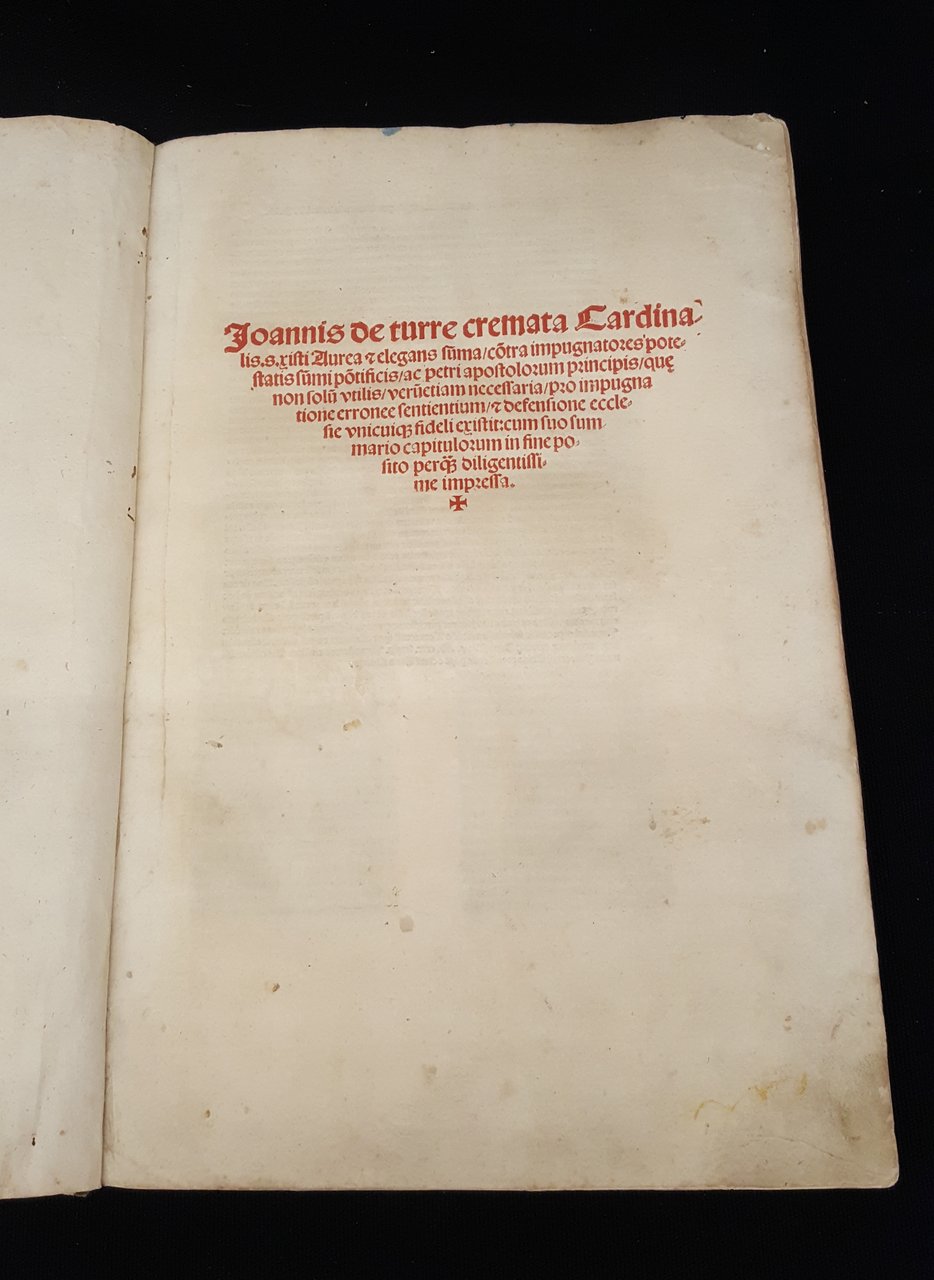 Joannis de turre cremata Cardina⸗
lis.s.xisti Aurea ⁊ elegans sūma/cōtra impugnatores pote⸗
statis sūmi pōtificis/ac petri apostolorum principis/quę
non solū vtilis/verūetiam necessaria/pro impugna
tione erronee sentientium/⁊ defensione eccle⸗
sie vnicuiqꝫ fideli existit:cum suo sum
mario capitulorum in fine po⸗
sito perq̄ꝫ diligentissi⸗
me impressa.
✠